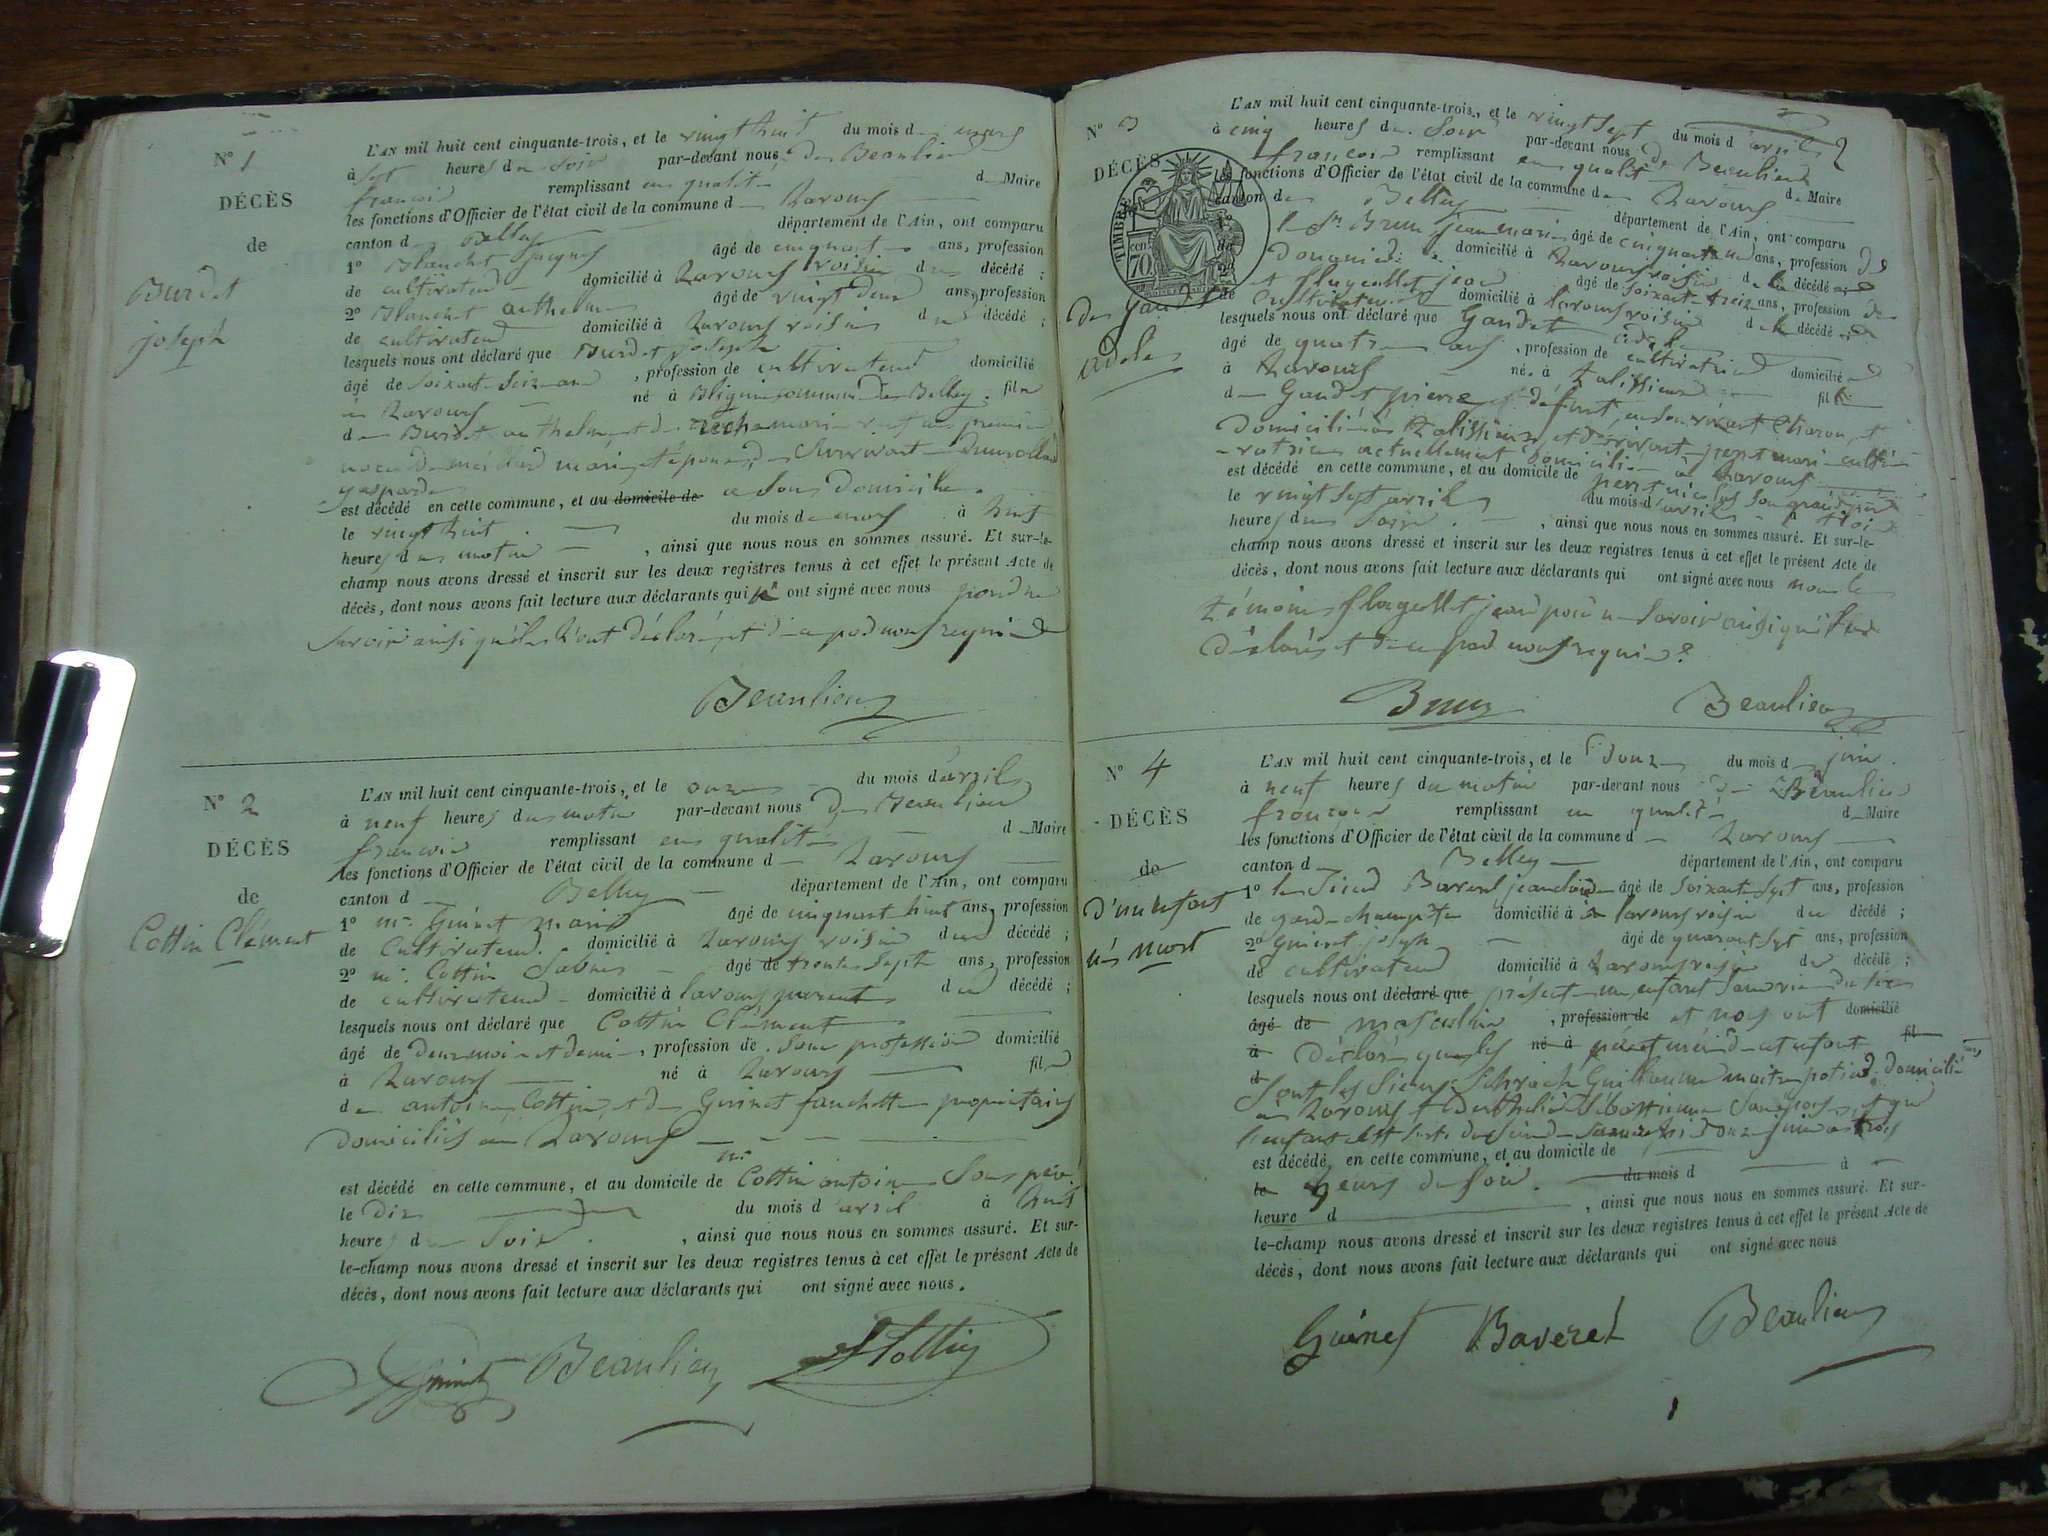 N° 1
DÉCÈS
de
Burdet
joseph
L'AN mil huit cent cinquante-trois, et le vingt huit du mois d mars
à sept heures du soir par-devant nous de Beaulieu
françois remplissant en qualité d Maire
les fonctions d'Officier de l'état civil de la commune d Lavours
canton d Belley département de l'Ain, ont comparu
1° Blanchet jacques âgé de cinquante ans, profession
de cultivateur domicilié à Lavours voisin du décédé ;
2° Blanchet anthelme âgé de vingt deux ans, profession
de cultivateur domicilié à Lavours voisin du décédé ;
lesquels nous ont déclaré que Burdet joseph
âgé de soixante seize ans, profession de cultivateur domicilié
à Lavours né à commune de Belley, fils
de Burdet anthelme et de marie
est décédé en cette commune, et au domicile de a son domicile
le vingt huit du mois de mars à huit
heures du matin, ainsi que nous nous en sommes assuré. Et sur-le-
champ nous avons dressé et inscrit sur les deux registres tenus à cet effet le présent Acte de
décès, dont nous avons fait lecture aux déclarants qui n' ont signé avec nous pour ne
savoir ainsi qu'ils l'ont déclaré et de ce par nous requis
Beaulieu
N° 2
DÉCÈS
de
Cottin Clément
L'AN mil huit cent cinquante-trois, et le onze du mois d'avril
à neuf heures du matin par-devant nous de Beaulieu
françois remplissant en qualité d Maire
les fonctions d'Officier de l'état civil de la commune d Lavours
canton d Belley département de l'Ain, ont comparu
1° mr Guinet marie âgé de cinquante huit ans, profession
de Cultivateur domicilié à Lavours voisin du décédé ;
2° mr Cottin âgé de trente sept ans, profession
de cultivateur domicilié à lavours parent du décédé ;
lesquels nous ont déclaré que Cottin Clément
âgé de deux mois et demi, profession de sans profession domicilié
à Lavours né à Lavours fils
de antoine Cottin et de Guinet fanchette propriétaires
domiciliés à Lavours
est décédé en cette commune, et au domicile de mr Cottin antoine son père
le dix du mois d'avril à huit
heures du soir, ainsi que nous nous en sommes assuré. Et sur-
le-champ nous avons dressé et inscrit sur les deux registres tenus à cet effet le présent Acte de
décès, dont nous avons fait lecture aux déclarants qui ont signé avec nous.
Guinet Beaulieu Cottin
N° 3
DÉCÈS
TIMBRE
cent 70
de Gaudet
adèle
L'AN mil huit cent cinquante-trois, et le vingt sept du mois d'avril
à cinq heures du soir par-devant nous de Beaulieu
françois remplissant en qualité d Maire
les fonctions d'Officier de l'état civil de la commune de Lavours
canton de Belley département de l'Ain, ont comparu
le Sr Brun jean marie âgé de cinquante un ans, profession de
Douanier domicilié à Lavours voisin de la décédée
et flageollet jean âgé de soixante treize ans, profession de
de Cultivateur domicilié à lavours voisin de la décédée
lesquels nous ont déclaré que Gaudet adèle
âgé de quatre ans, profession de cultivatrice domicilié
à Lavours née à Talissieu fille
de Gaudet pierre défunt en son vivant
domicilié à Talissieu et marie
actuellement domiciliée à Lavours
est décédé en cette commune, et au domicile de son grand père
le vingt sept avril du mois d'avril à trois
heures du soir, ainsi que nous nous en sommes assuré. Et sur-le-
champ nous avons dressé et inscrit sur les deux registres tenus à cet effet le présent Acte de
décès, dont nous avons fait lecture aux déclarants qui ont signé avec nous non le
témoin flageollet jean pour ne savoir ainsi qu'il l'a
déclaré et de ce par nous requis
Brun Beaulieu
N° 4
DÉCÈS
de
d'un enfant
né mort
L'AN mil huit cent cinquante-trois, et le Douze du mois d juin
à neuf heures du matin par-devant nous de Beaulieu
françois remplissant en qualité d Maire
les fonctions d'Officier de l'état civil de la commune d Lavours
canton d Belley département de l'Ain, ont comparu
1° le Sieur Baveret jean âgé de soixante sept ans, profession
de garde champêtre domicilié à lavours voisin du décédé ;
2° Guinet joseph âgé de quarante sept ans, profession
de cultivateur domicilié à Lavours voisin du décédé ;
lesquels nous ont déclaré que présenté un enfant sans vie du sexe
âgé de masculin, profession de et nous ont domicilié
à déclaré que les né à père et mère de cet enfant fil
d sont les Sieurs Guillaume domiciliés
à Lavours et
l'enfant est sorti du sein de sa mère
est décédé en cette commune, et au domicile de
le heures du soir. du mois d à
heure d, ainsi que nous nous en sommes assuré. Et sur-
le-champ nous avons dressé et inscrit sur les deux registres tenus à cet effet le présent Acte de
décès, dont nous avons fait lecture aux déclarants qui ont signé avec nous
Guinet Baveret Beaulieu